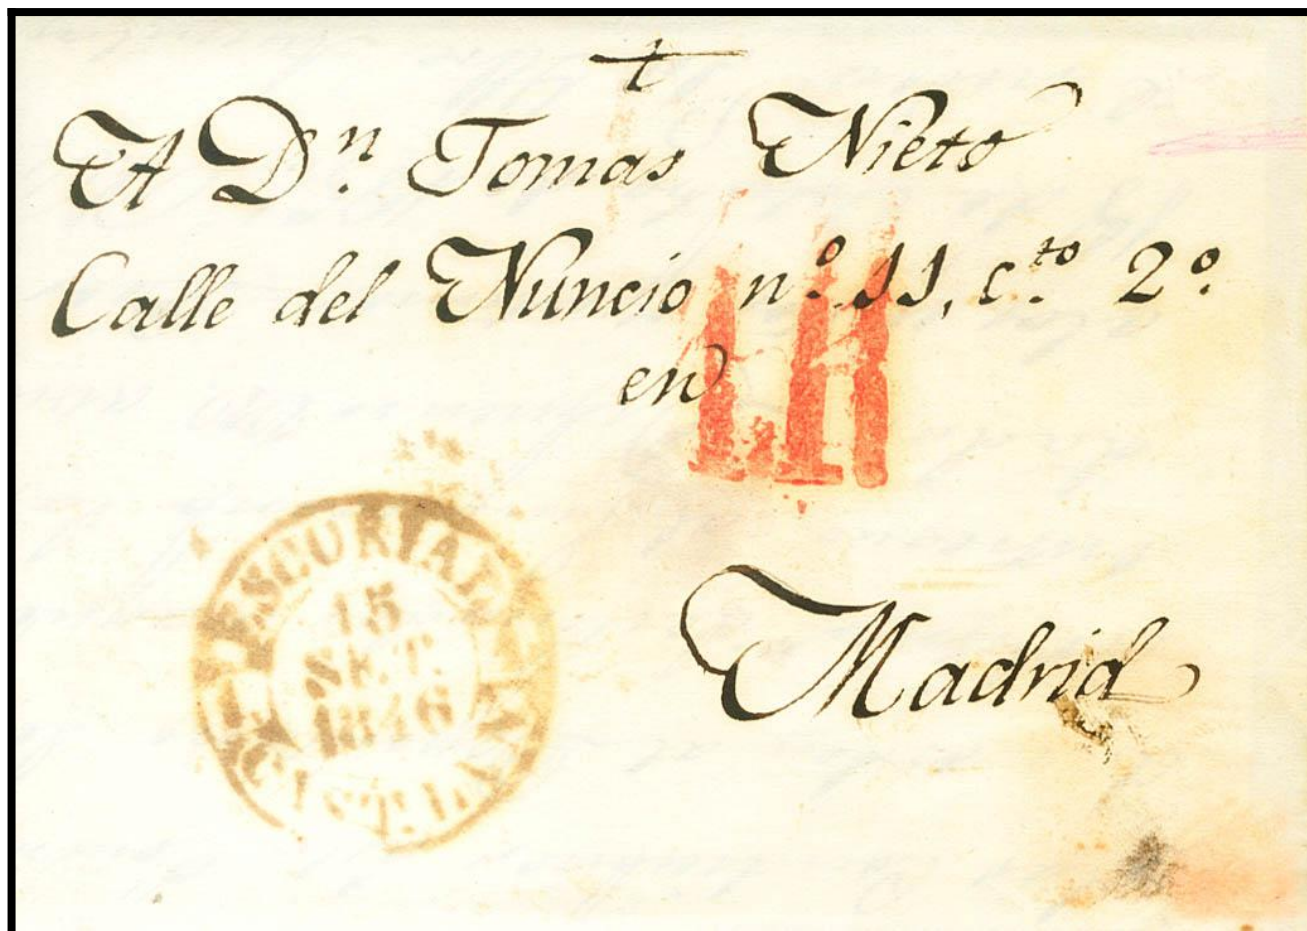 A Dn. Tomas Nieto
Calle del Nuncio nº. 11, cto. 2º.
en
Madrid
ESCURIAL
15
SET.
1846